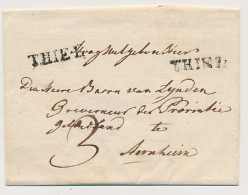 THIEL
THIEL
Hoog Welgeboren Heer
Den Heere Baron van Lynden
Gouverneur der Provintie
Gelderland te
3
Arnhem